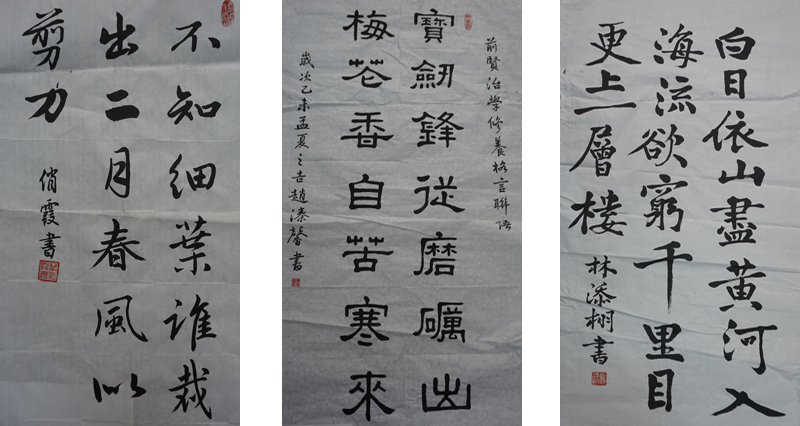 不知細葉誰裁
出二月春風似
剪刀
俏霞書
前賢治學修養格言聯語
寶劍鋒從磨礪出
梅花香自苦寒來
歲次乙未孟夏之吉趙溱馨書
白日依山盡黃河入
海流欲窮千里目
更上一層樓
林添栩書